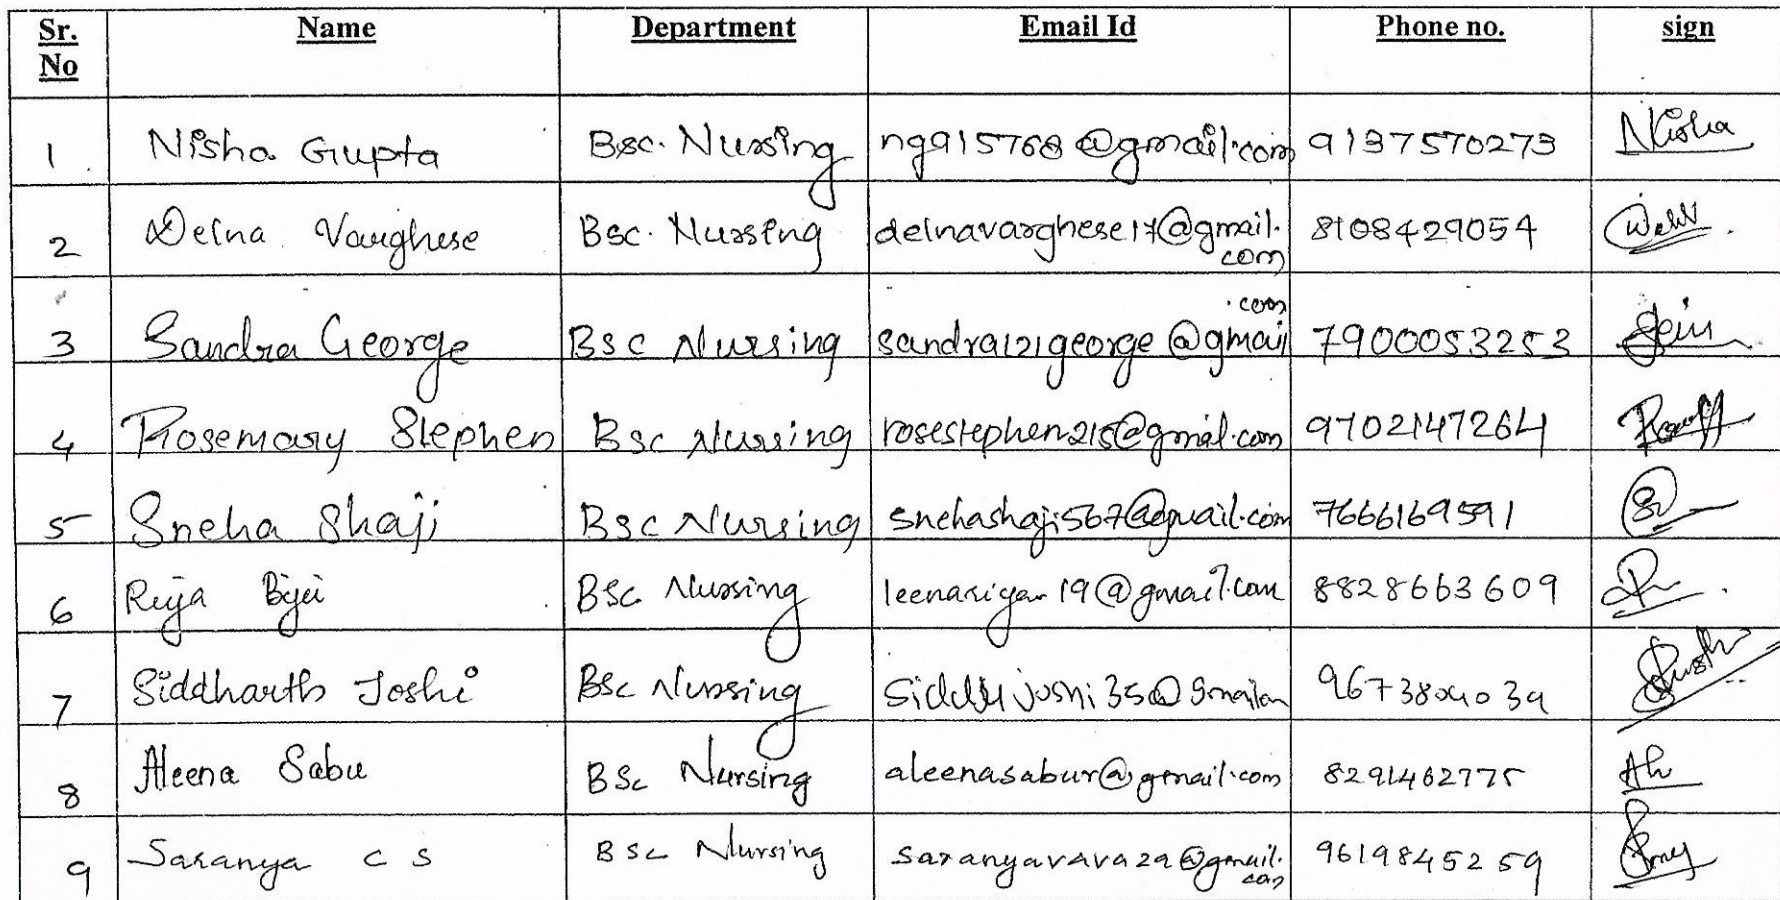 Sr. No Name Department Email Id Phone no. sign
1 Nisha Gupta Bsc. Nursing ng915768@gmail.com 9137570273 Nisha
2 Delna Varghese Bsc. Nursing delnavarghese17@gmail.com 8108429054
3 Sandra George Bsc Nursing sandra121george@gmail.com 7900053253
4 Rosemary Stephen Bsc Nursing rosestephen215@gmail.com 9702147264
5 Sneha Shaji Bsc Nursing snehashaji567@gmail.com 7666169591
6 Rija Biju BSc Nursing 8828663609
7 Siddharth Joshi BSc Nursing
8 Aleena Sabu BSc Nursing aleenasabur@gmail.com 8291462775
9 Saranya C S BSc Nursing saranyavava29@gmail.com 9619845259